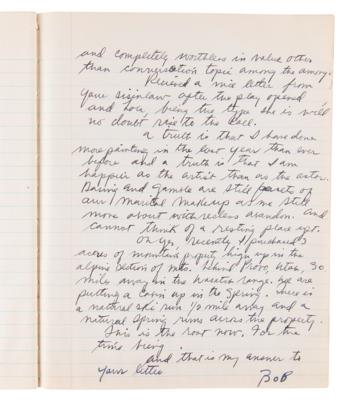 and completely worthless in value other
than conversation topic among the
Received a nice letter from
your sisinlaw after the play opened
and Lou, being the type she is will
no doubt rise to the call.
a truth is that I have done
more painting in the last year than ever
before and a truth is that I am
happier as the artist than as the actor.
Daring and Gamble are still parts of
our marital makeup as we still
move about with reckless abandon. and
cannot think of a resting place yet.
Oh yes, recently I purchased 2
acres of mountain property high up in the
alpine section of mts. behind Provo, Utah, 30
miles away in the wasatch range. We are
putting a cabin up in the Spring. There is
a natural ski run 1/2 mile away and a
natural Spring runs across the property.
This is the root now. For the
time being.
and that is my answer to
your letter
Bob